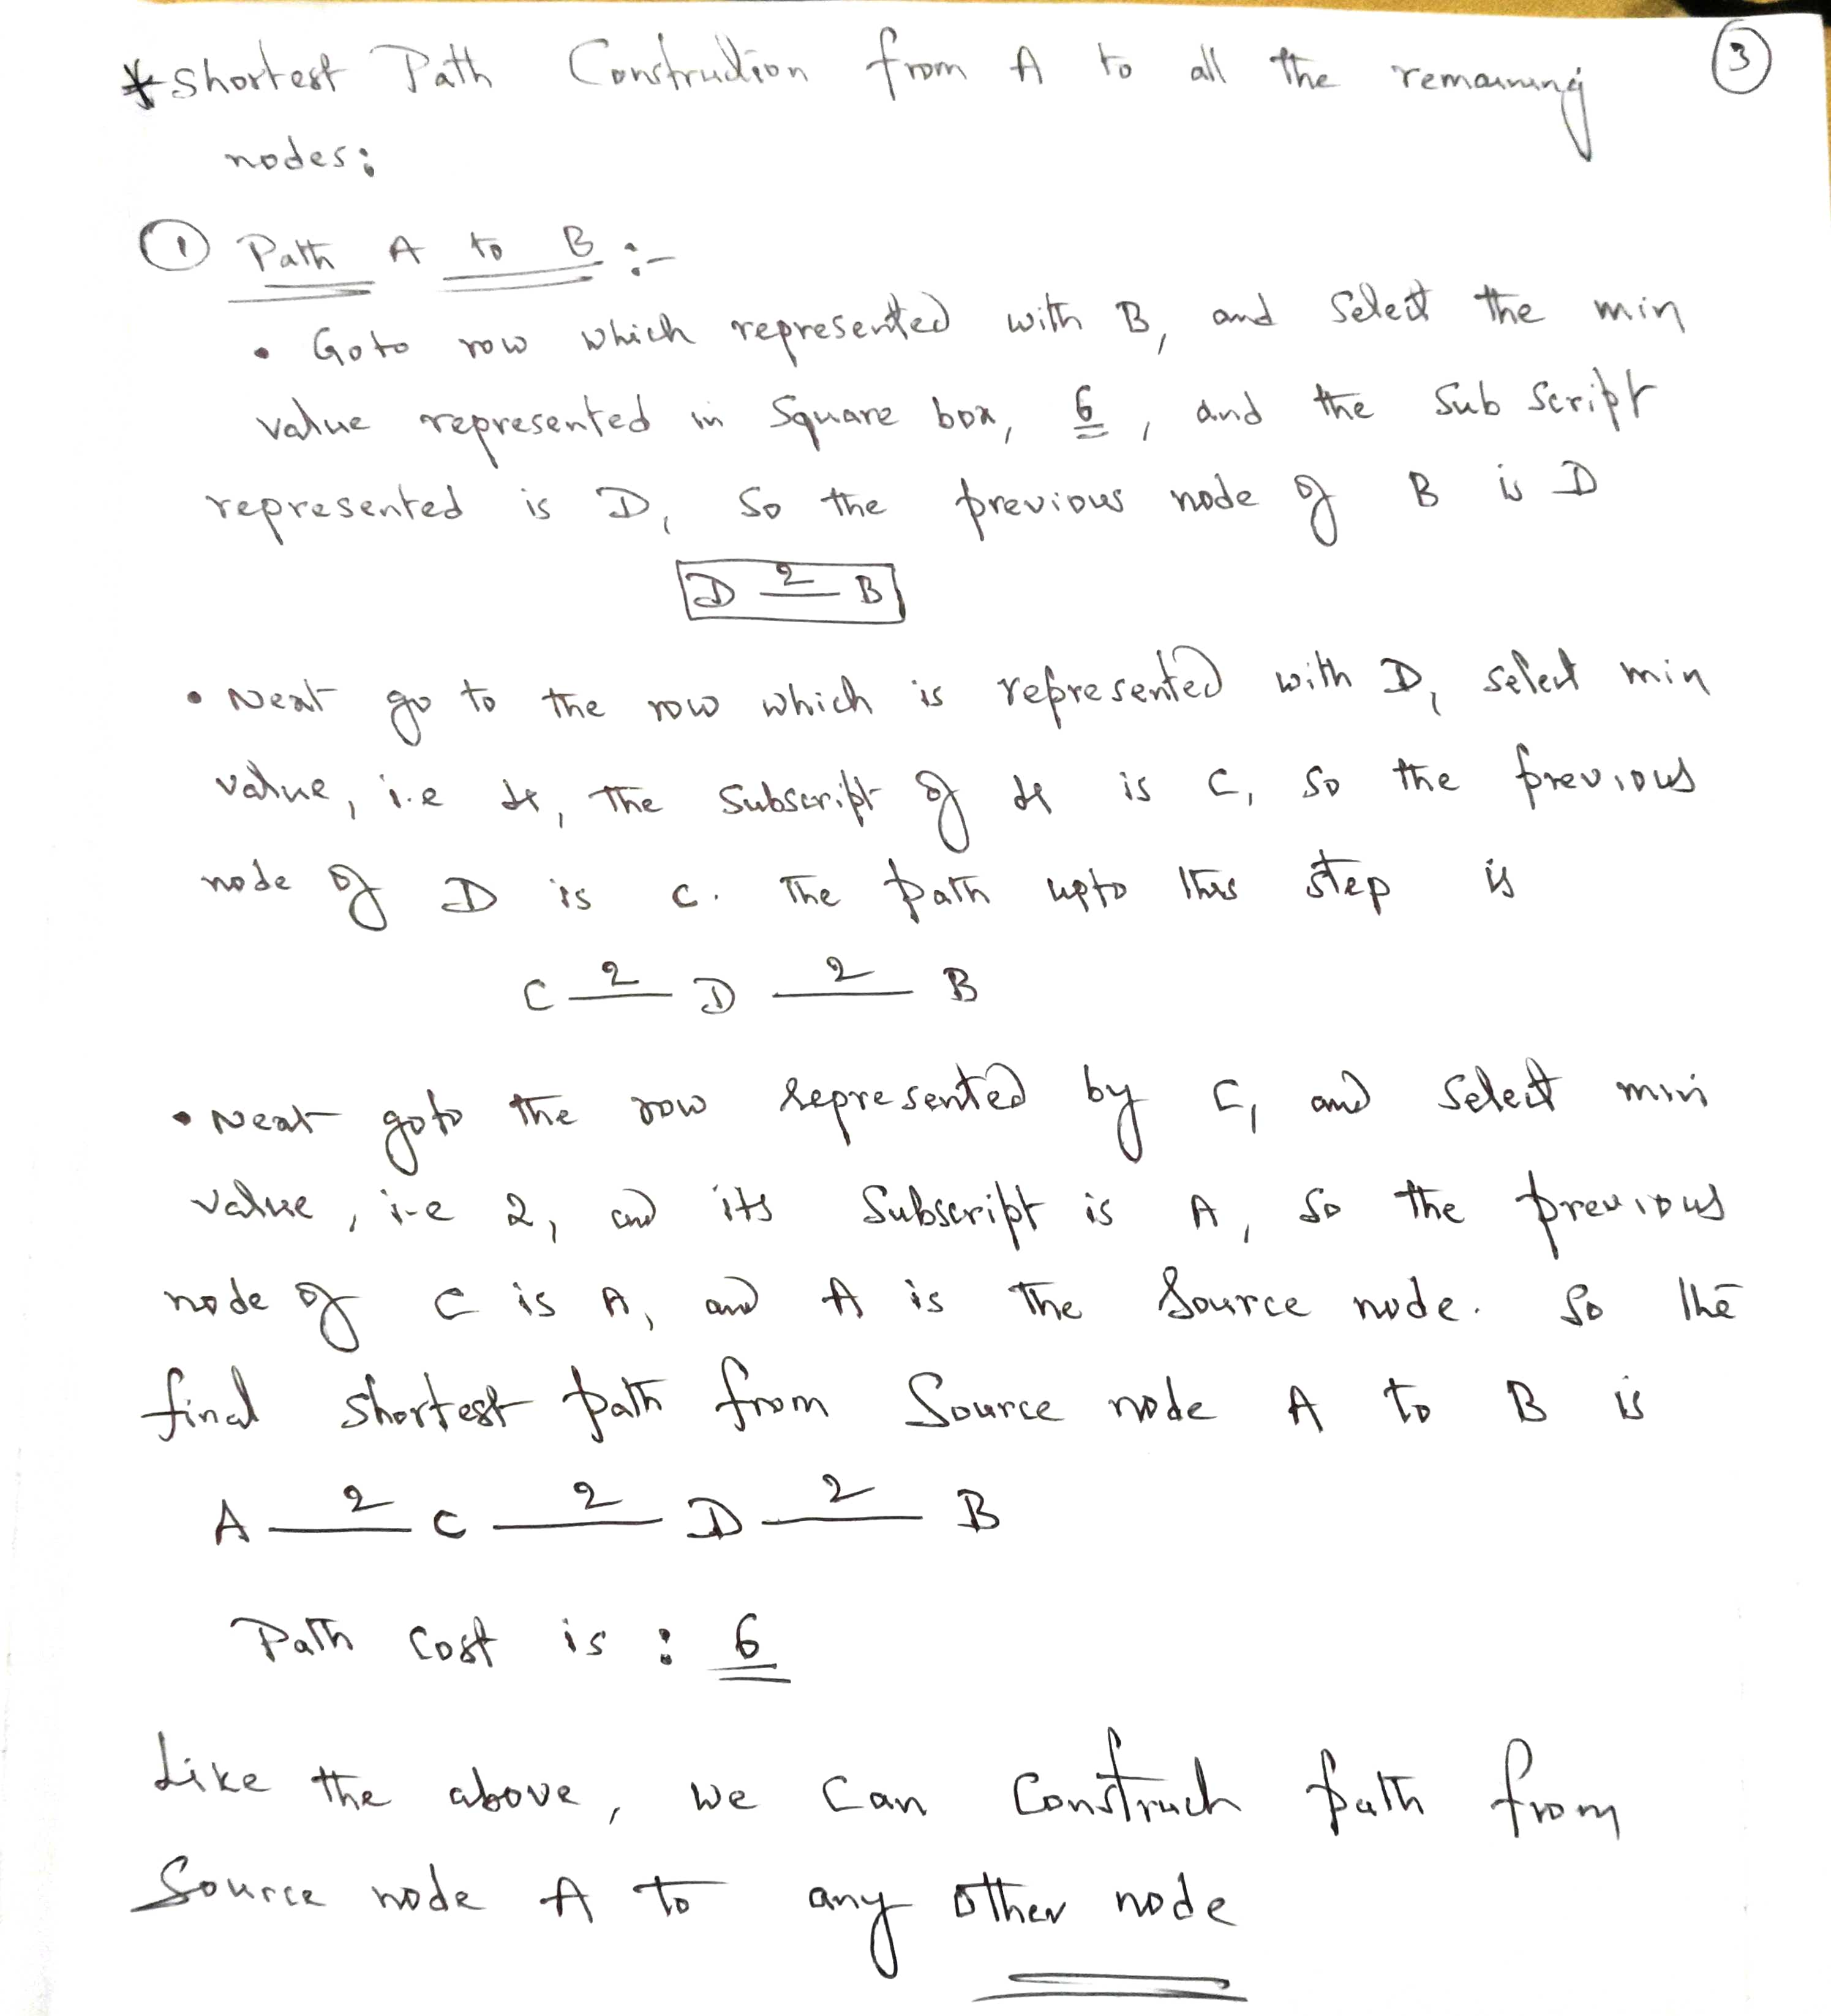 * Shortest Path Construction from A to all the remaining ③
nodes:
① Path A to B :-
• Goto row which represented with B, and Select the min
value represented in Square box, 6, and the Sub Script
represented is D, So the previous node of B is D
D 2 B
• Next go to the row which is represented with D, select min
value, i.e 4, The Subscript of 4 is C, So the previous
node of D is C. The path upto this step is
C 2 D 2 B
• Next goto the row represented by C, and Select min
value, i.e 2, and its Subscript is A, So the previous
node of C is A, and A is the Source node. So the
final shortest path from Source node A to B is
A 2 C 2 D 2 B
Path Cost is : 6
Like the above, we can Construct path from
Source node A to any other node